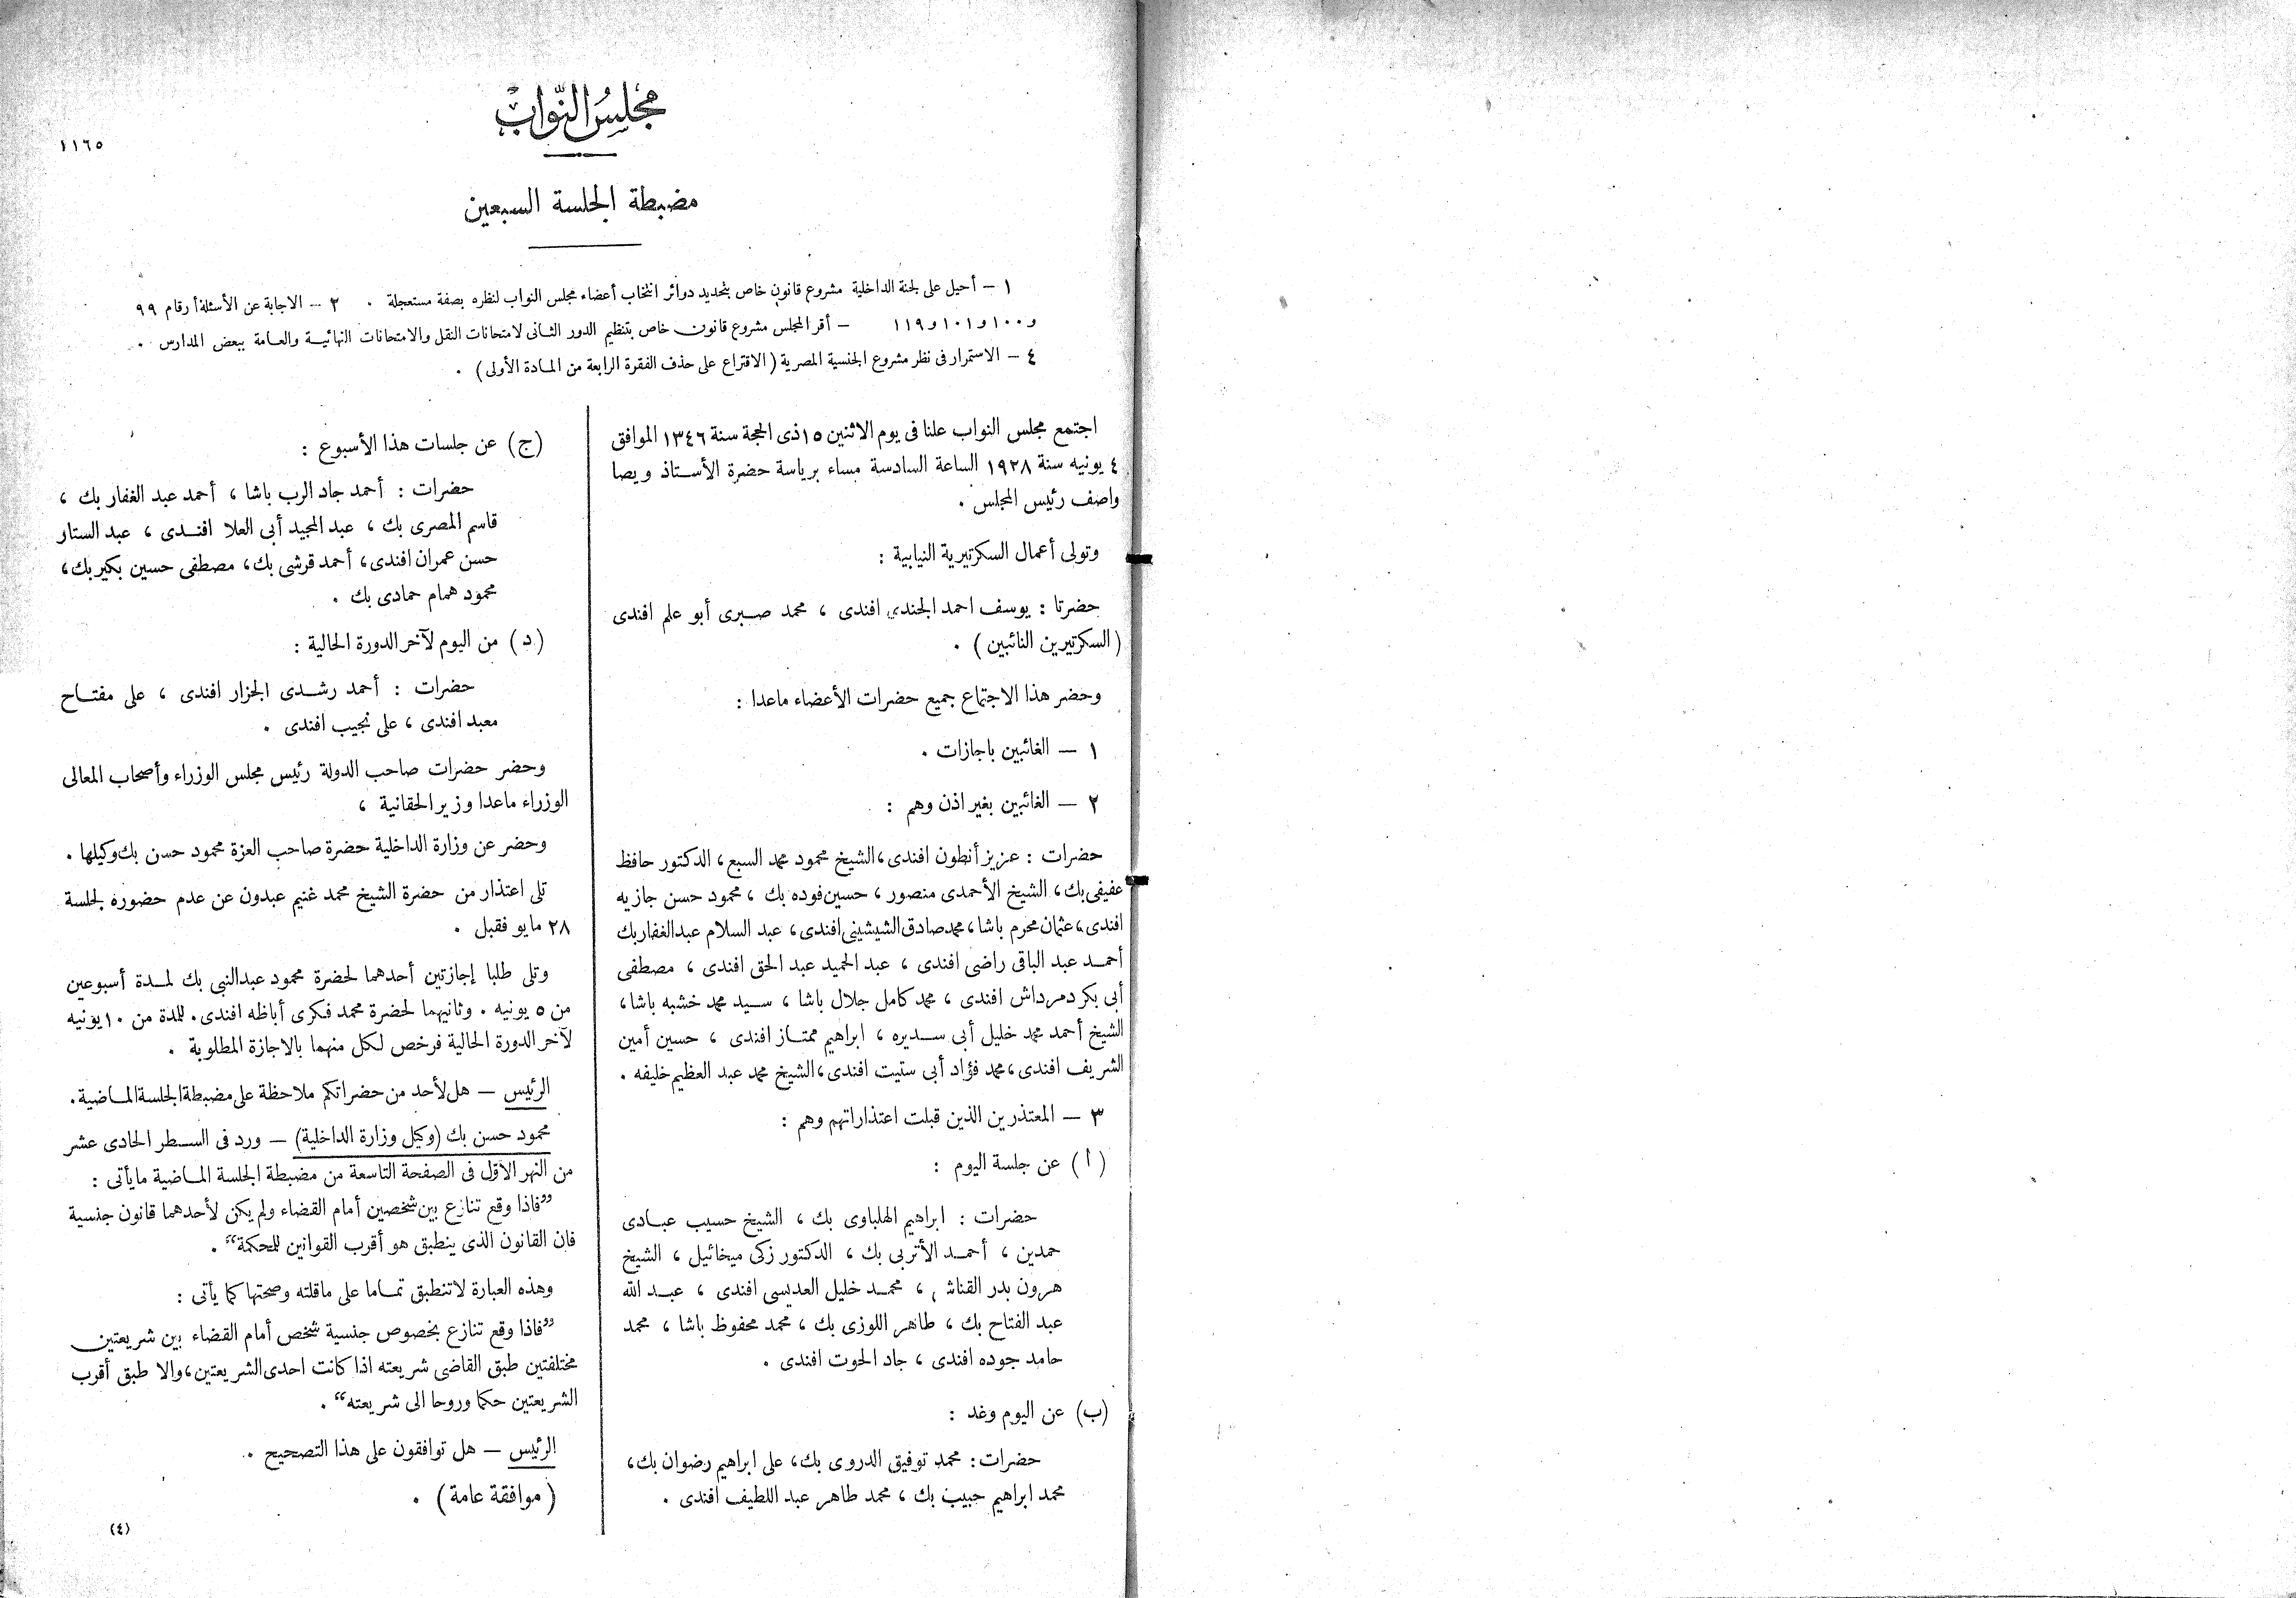 مجلس النواب
١١٦٥
مضبطة الجلسة السبعين
١ — أحيل على لجنة الداخلية مشروع قانون خاص بتحديد دوائر انتخاب أعضاء مجلس النواب لنظره بصفة مستعجلة . ٢ — الاجابة عن الأسئلة أرقام ٩٩
و١٠٠ و١٠١ و١١٩ — أقر المجلس مشروع قانون خاص بتنظيم الدور الثانى لامتحانات النقل والامتحانات النهائية والعامة ببعض المدارس .
٤ — الاستمرار فى نظر مشروع الجنسية المصرية (الاقتراع على حذف الفقرة الرابعة من المادة الأولى) .
اجتمع مجلس النواب علنا فى يوم الاثنين ١٥ ذى الحجة سنة ١٣٤٦ الموافق
٤ يونيه سنة ١٩٢٨ الساعة السادسة مساء برياسة حضرة الأستاذ ويصا
واصف رئيس المجلس .
وتولى أعمال السكرتيرية النيابية :
حضرتا : يوسف احمد الجندى افندى ، محمد صبرى أبو علم افندى
(السكرتيرين النائبين) .
وحضر هذا الاجتماع جميع حضرات الأعضاء ماعدا :
١ — الغائبين باجازات .
٢ — الغائبين بغير اذن وهم :
حضرات : عزيز أنطون افندى، الشيخ محمود محمد السبع، الدكتور حافظ
عفيفى بك، الشيخ الأحمدى منصور، حسين فوده بك ، محمود حسن جازيه
افندى، عثمان محرم باشا، محمد صادق الشيشينى افندى، عبد السلام عبد الغفار بك
أحمد عبد الباقى راضى افندى ، عبد الحميد عبد الحق افندى ، مصطفى
أبى بكر دمرداش افندى ، محمد كامل جلال باشا ، سيد محمد خشبه باشا،
الشيخ أحمد محمد خليل أبى سديره ، ابراهيم ممتاز افندى ، حسين أمين
الشريف افندى، محمد فؤاد أبى ستيت افندى، الشيخ محمد عبد العظيم خليفه .
٣ — المعتذرين الذين قبلت اعتذاراتهم وهم :
(أ) عن جلسة اليوم :
حضرات : ابراهيم الهلباوى بك ، الشيخ حسيب عبادى
حمدين ، أحمد الأتربى بك ، الدكتور زكى ميخائيل ، الشيخ
هرون بدر ، محمد خليل العديسى افندى ، عبد الله
عبد الفتاح بك ، طاهر اللوزى بك ، محمد محفوظ باشا ، محمد
حامد جوده افندى ، جاد الحوت افندى .
(ب) عن اليوم وغد :
حضرات : محمد توفيق الدروى بك، على ابراهيم رضوان بك،
محمد ابراهيم حبيب بك ، محمد طاهر عبد اللطيف افندى .
(ج) عن جلسات هذا الأسبوع :
حضرات : أحمد جاد الرب باشا ، أحمد عبد الغفار بك ،
قاسم المصرى بك ، عبد المجيد أبى العلا افندى ، عبد الستار
حسن عمران افندى، أحمد قرشى بك، مصطفى حسين بكير بك،
محمود همام حمادى بك .
(د) من اليوم لآخر الدورة الحالية :
حضرات : أحمد رشدى الجزار افندى ، على مفتاح
معبد افندى ، على نجيب افندى .
وحضر حضرات صاحب الدولة رئيس مجلس الوزراء وأصحاب المعالى
الوزراء ماعدا وزير الحقانية ،
وحضر عن وزارة الداخلية حضرة صاحب العزة محمود حسن بك وكيلها .
تلى اعتذار من حضرة الشيخ محمد غنيم عبدون عن عدم حضوره لجلسة
٢٨ مايو فقبل .
وتلى طلبا إجازتين أحدهما لحضرة محمود عبد النبى بك لمدة أسبوعين
من ٥ يونيه . وثانيهما لحضرة محمد فكرى أباظه افندى . للمدة من ١٠ يونيه
لآخر الدورة الحالية فرخص لكل منهما بالاجازة المطلوبة .
الرئيس — هل لأحد من حضراتكم ملاحظة على مضبطة الجلسة الماضية .
محمود حسن بك (وكيل وزارة الداخلية) — ورد فى السطر الحادى عشر
من النهر الأول فى الصفحة التاسعة من مضبطة الجلسة الماضية مايأتى :
”فاذا وقع تنازع بين شخصين أمام القضاء ولم يكن لأحدهما قانون جنسية
فان القانون الذى ينطبق هو أقرب القوانين للحكمة“ .
وهذه العبارة لاتنطبق تماما على ماقلته وصحتها كما يأتى :
”فاذا وقع تنازع بخصوص جنسية شخص أمام القضاء بين شريعتين
مختلفتين طبق القاضى شريعته اذا كانت احدى الشريعتين، والا طبق أقرب
الشريعتين حكما وروحا الى شريعته“ .
الرئيس — هل توافقون على هذا التصحيح .
(موافقة عامة) .
(٤)